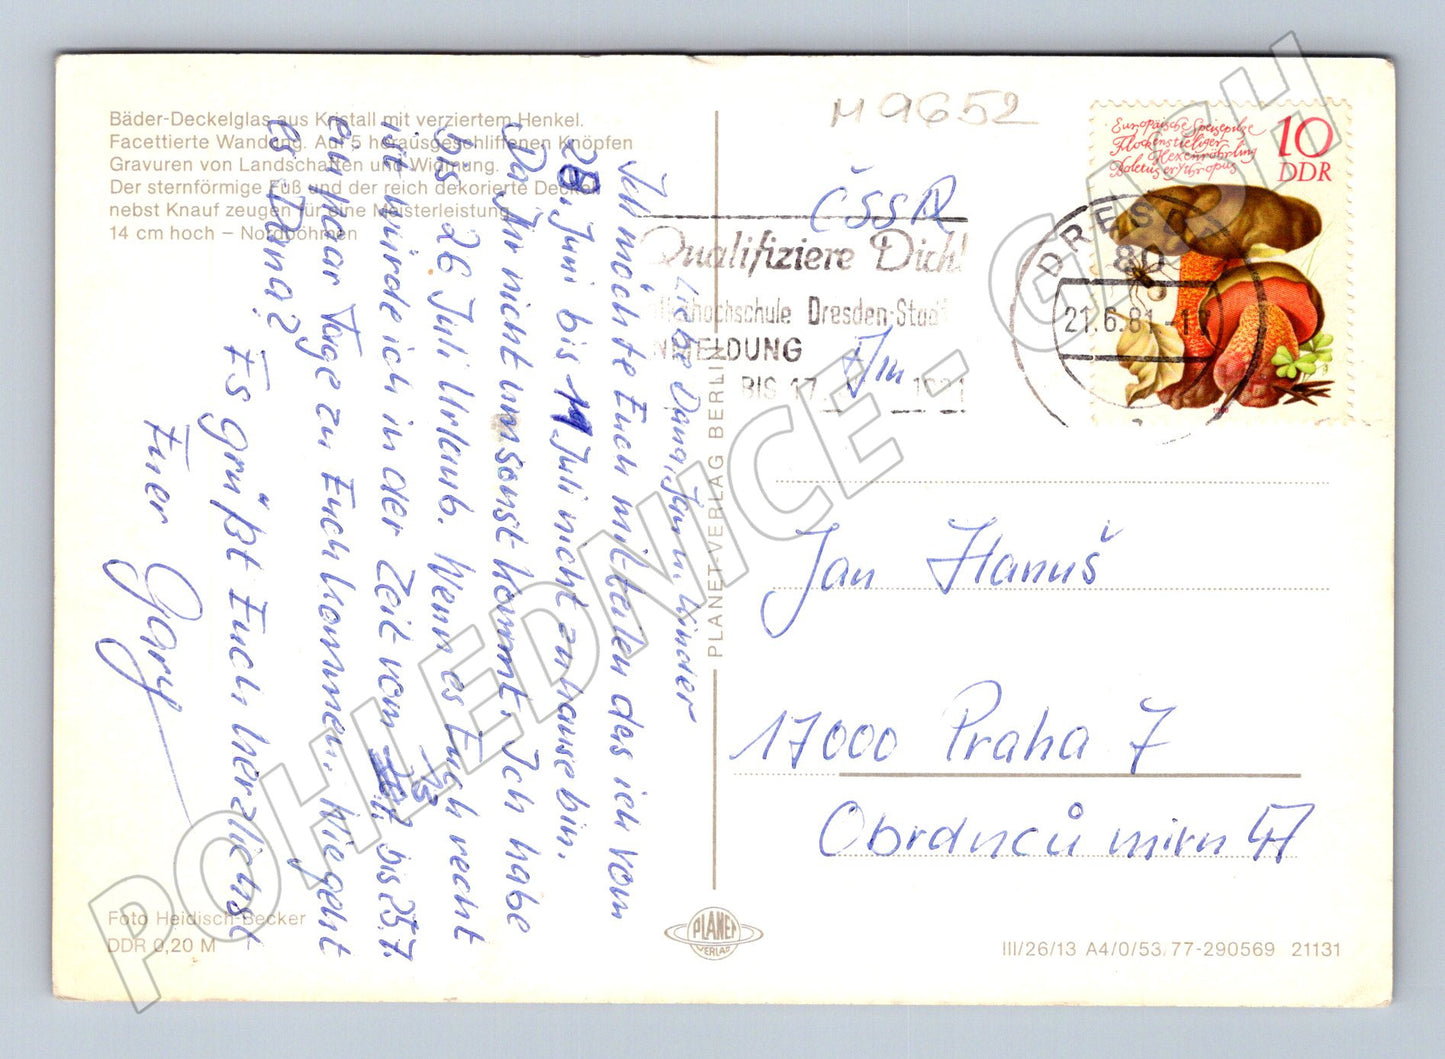 Bäder-Deckelglas aus Kristall mit verziertem Henkel.
Facettierte Wandung. Auf 5 herausgeschliffenen Knöpfen
Gravuren von Landschaften und Widmung.
Der sternförmige Fuß und der reich dekorierte Deckel
nebst Knauf zeugen für eine Meisterleistung
14 cm hoch – Nordböhmen
Liebe Dana, Jan u. Kinder
Ich möchte Euch mitteilen das ich vom
28. Juni bis 11 Juli nicht zuhause bin.
Das Ihr nicht umsonst kommt. Ich habe
bis 26 Juli Urlaub. Wenn es Euch recht
ist würde ich in der Zeit vom bis 25.7.
ein paar Tage zu Euch kommen. Wie geht
es Dana?
Es grüßt Euch herzlichst
Euer Gary
Foto Heidisch-Becker
DDR 0,20 M
PLANET-VERLAG BERLIN
PLANET
VERLAG
M 9652
ČSSR
Qualifiziere Dich!
Volkshochschule Dresden-Stadt
ANMELDUNG
BIS 17.
DRESDEN
80
21.6.81-17
Europäische Speisepilze
Flockenstieliger
Hexenröhrling
Boletus erythropus
10
DDR
1980
Jan Hanuš
17000 Praha 7
Obránců míru 47
III/26/13 A4/0/53/77-290569 21131
POHLEDNICE - GASH